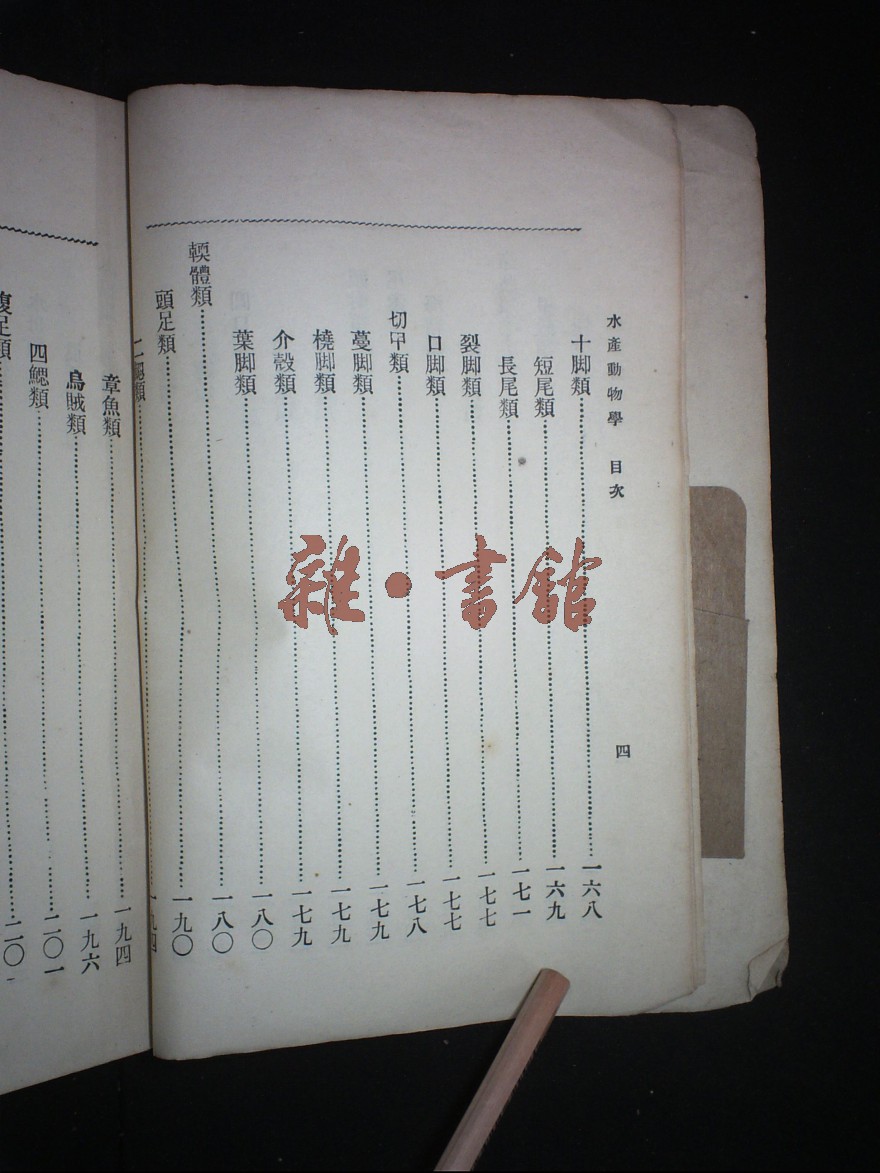 水產動物學 目次
四
十脚類 一六八
短尾類 一六九
長尾類 一七一
裂脚類 一七七
口脚類 一七七
切甲類 一七八
蔓脚類 一七九
橈脚類 一七九
介殼類 一七九
葉脚類 一八〇
輭體類 一八〇
頭足類 一九〇
二鰓類 一九四
章魚類 一九四
烏賊類 一九六
四鰓類 二〇一
腹足類 二〇一
雜·書館